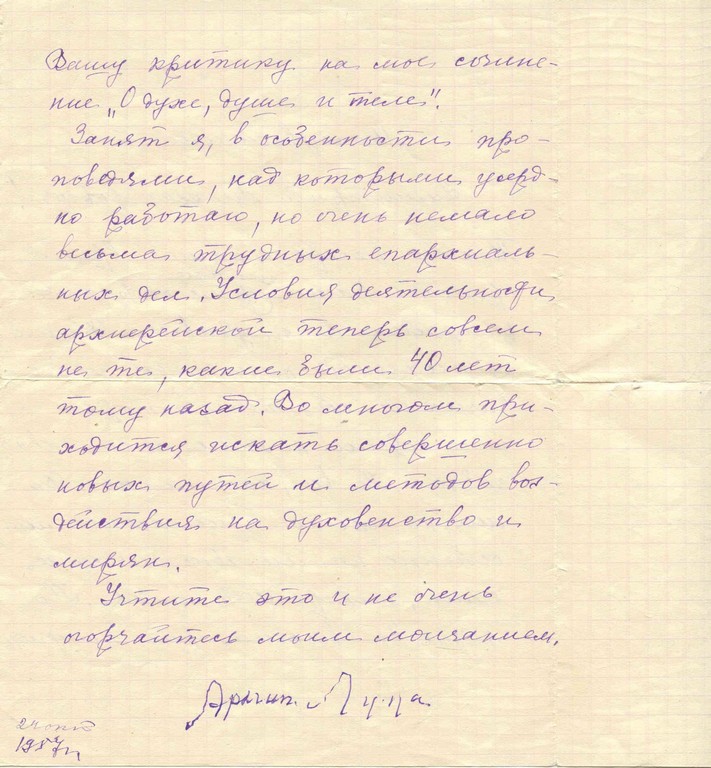 Вашу критику на мое сочине-
ние „О духе, душе и теле".
Занят я, в особенности про-
поведями, над которыми усерд-
но работаю, но очень немало
весьма трудных епархиаль-
ных дел. Условия деятельности
архиерейской теперь совсем
не те, какие были 40 лет
тому назад. Во многом при-
ходится искать совершенно
новых путей и методов воз-
действия на духовенство и
мирян.
Учтите это и не очень
огорчайтесь моим молчанием.
Архиеп. Лука
24 окт
1957 г.